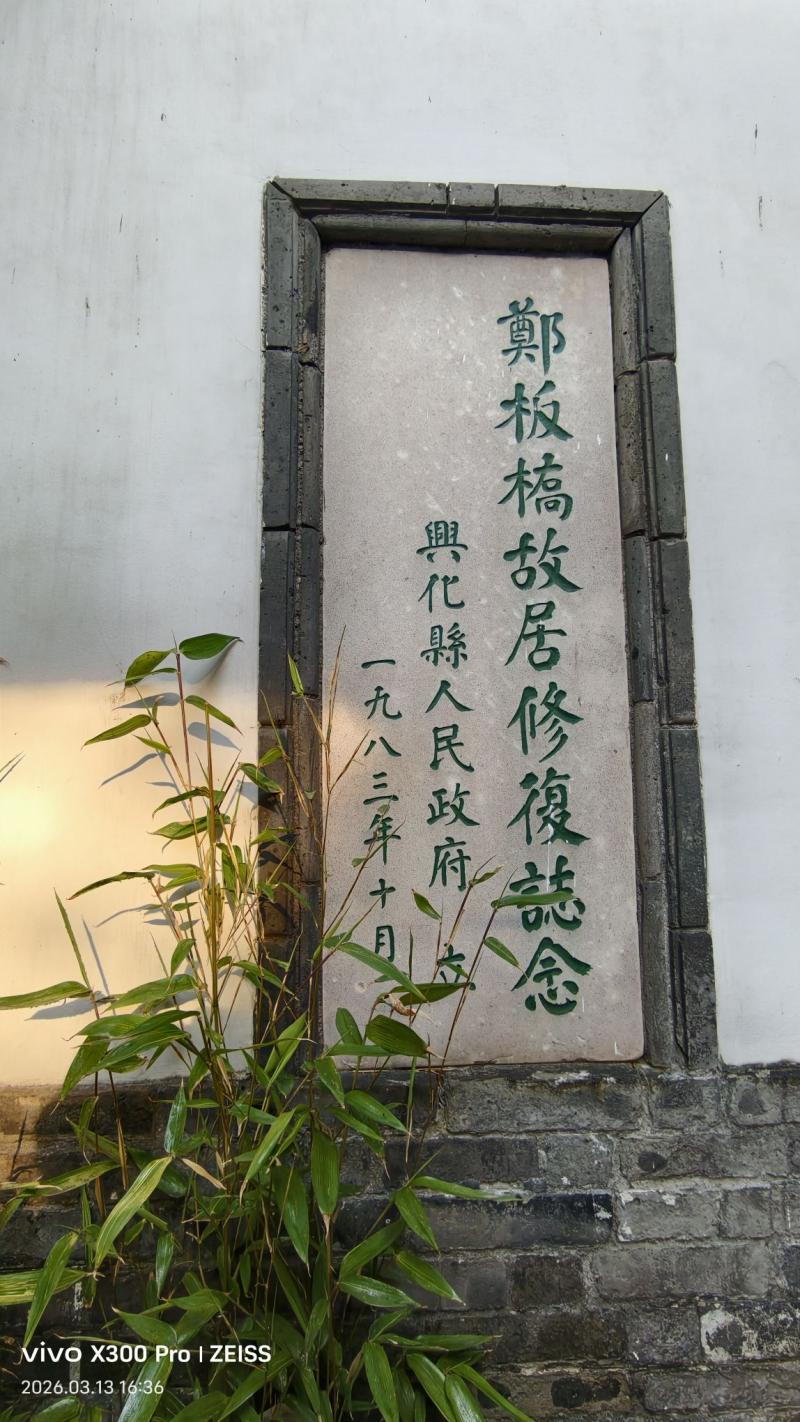 鄭板橋故居修復誌念
興化縣人民政府 立
一九八三年十月
vivo X300 Pro | ZEISS
2026.03.13 16:36